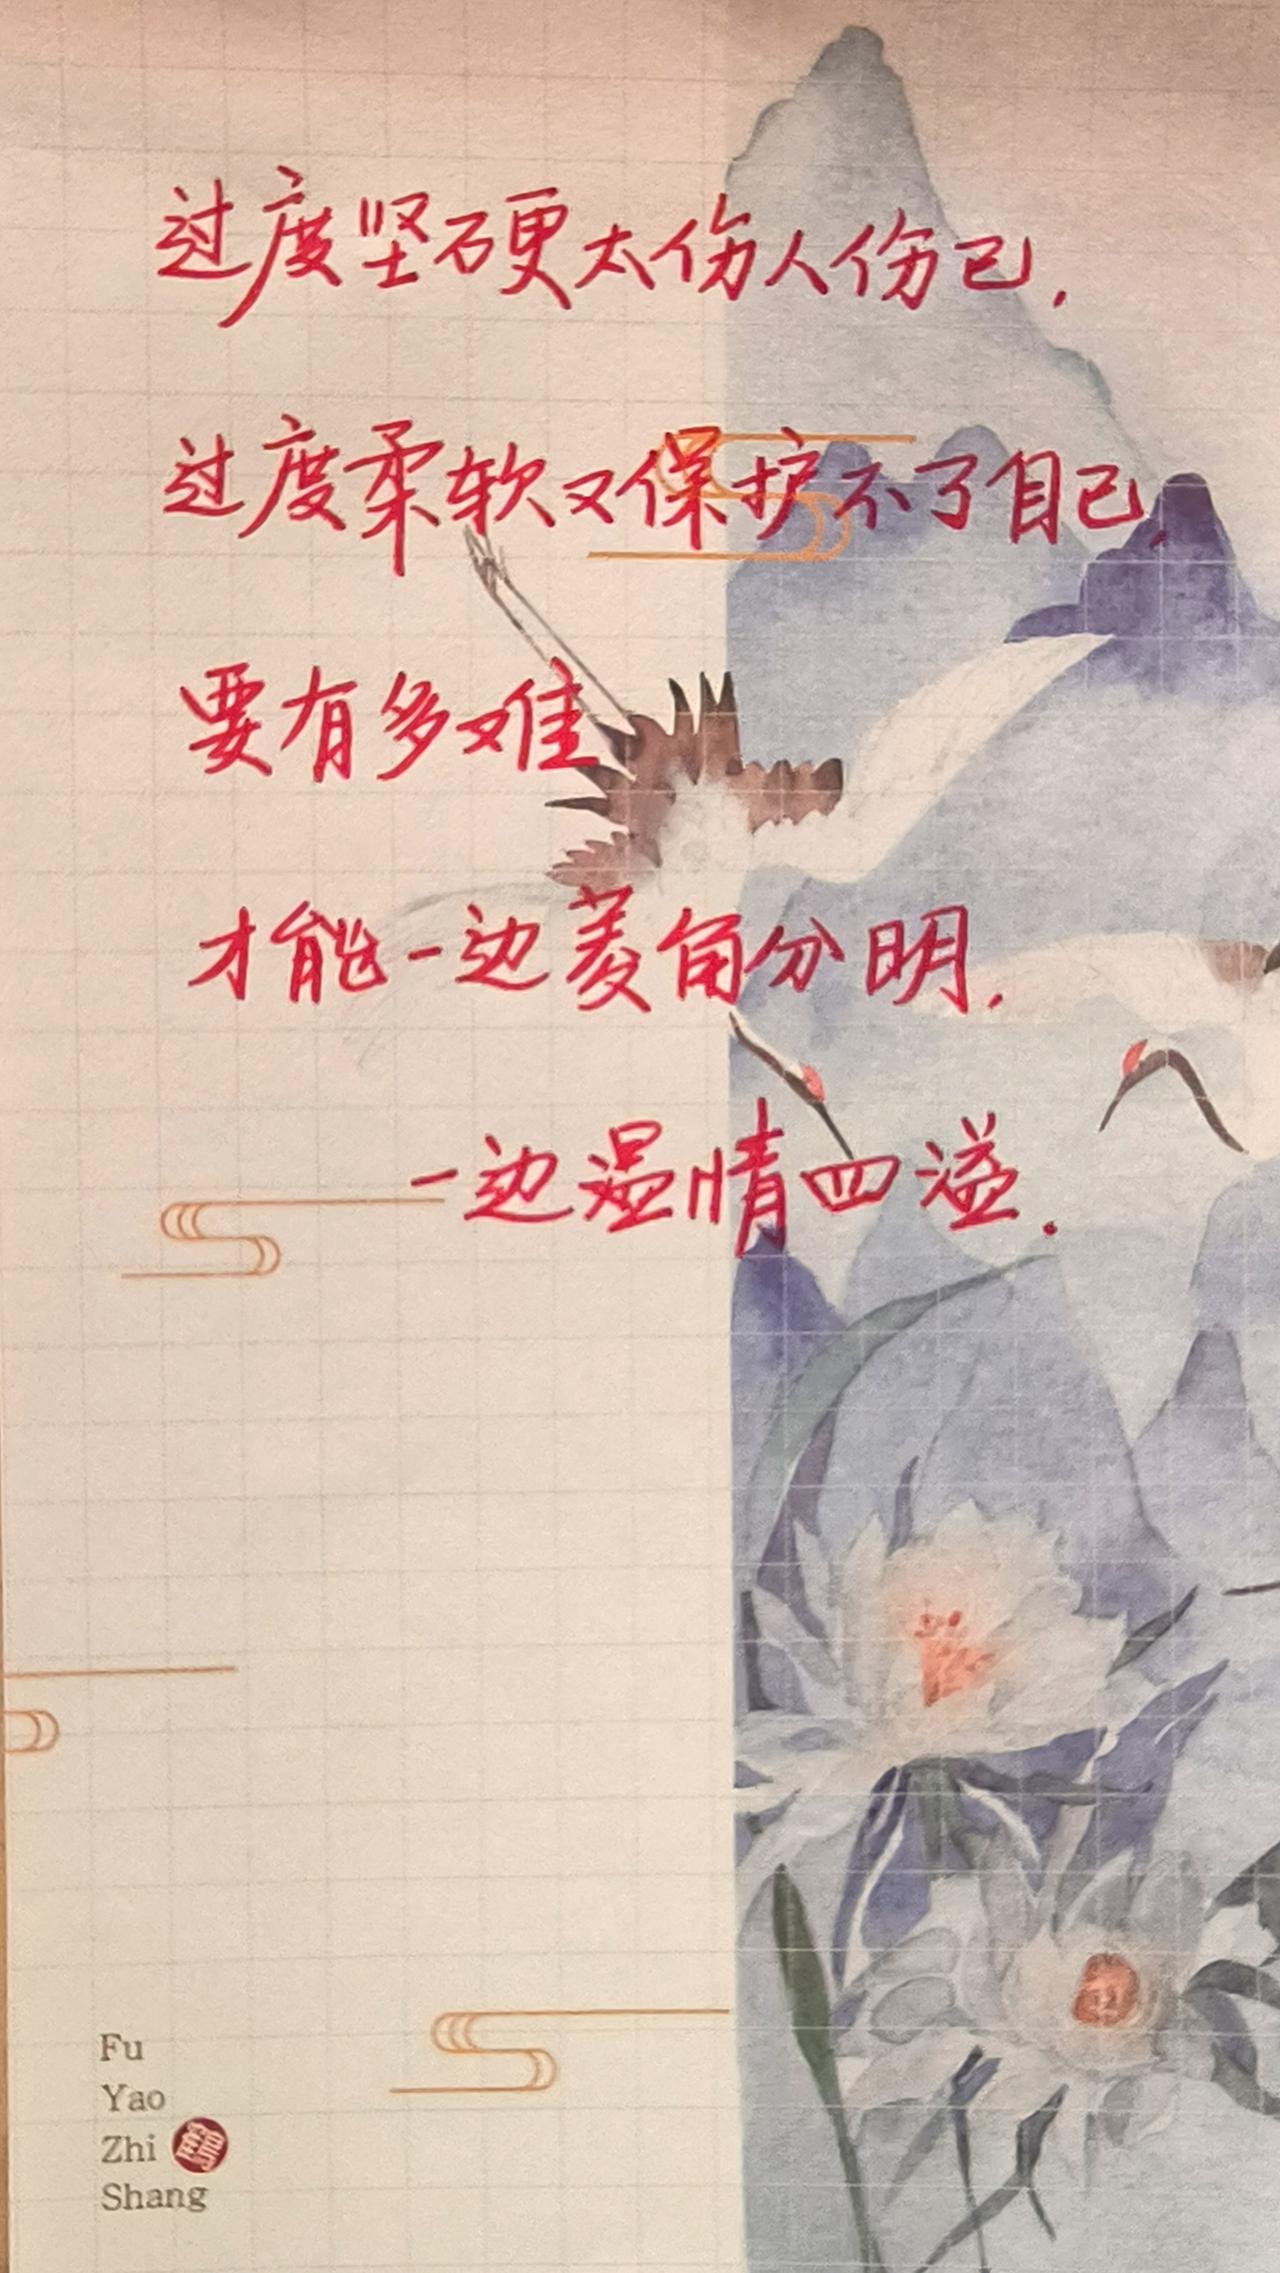 过度坚硬太伤人伤己,
过度柔软又保护不了自己,
要有多难
才能一边菱角分明,
一边温情四溢.
Fu
Yao
Zhi
Shang